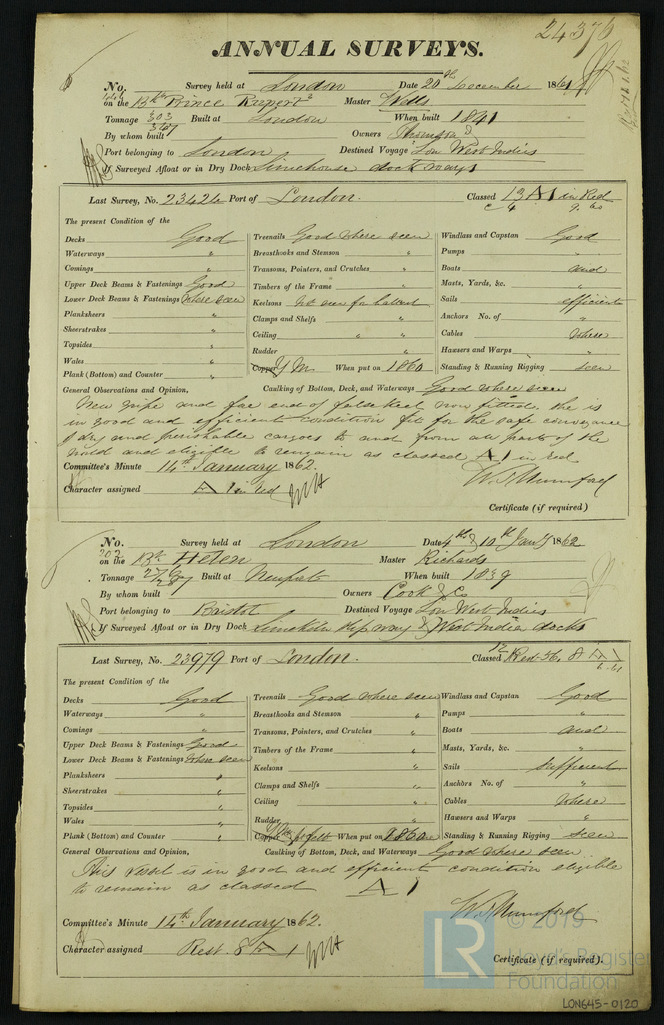 24376
ANNUAL SURVEYS.
No. Survey held at London Date 20th December 1861
on the Bk Prince Rupert Master Wells
Tonnage 303 Built at London When built 1841
367
By whom built Owners Thomson &
Port belonging to London Destined Voyage Lon West Indies
If Surveyed Afloat or in Dry Dock Limehouse dock ways
Last Survey, No. 23424 Port of London. Classed 13 A1 in Red
The present Condition of the
Decks Good Treenails Good where seen Windlass and Capstan Good
Waterways " Breasthooks and Stemson " Pumps "
Comings " Transoms, Pointers, and Crutches " Boats and
Upper Deck Beams & Fastenings Good Timbers of the Frame " Masts, Yards, &c. "
Lower Deck Beams & Fastenings where seen Keelsons not seen for ballast Sails efficient
Planksheers " Clamps and Shelfs " Anchors No. of "
Sheerstrakes " Ceiling " " Cables where
Topsides " Rudder " Hawsers and Warps "
Wales " Copper Y M When put on 1860 Standing & Running Rigging seen
Plank (Bottom) and Counter "
General Observations and Opinion, Caulking of Bottom, Deck, and Waterways Good where seen
New gripe and fore end of false keel now fitted. She is
in good and efficient condition fit for the safe conveyance
of dry and perishable cargoes to and from all parts of the
world and eligible to remain as classed A1 in red
Committee's Minute 14th January 1862.
W. T. Mumford
Character assigned A1 in red
Certificate (if required)
No. Survey held at London Date 4th & 10th Jany 1862
202
on the Bk Helen Master Richards
Tonnage Built at Newport When built 1839
By whom built Owners Cook & Co
Port belonging to Bristol Destined Voyage Lon West Indies
If Surveyed Afloat or in Dry Dock Limekiln slip way & West India docks
Last Survey, No. 23979 Port of London. Classed Rest 56. 8 A1
The present Condition of the
Decks Good Treenails Good where seen Windlass and Capstan Good
Waterways " Breasthooks and Stemson " Pumps "
Comings " Transoms, Pointers, and Crutches " Boats and
Upper Deck Beams & Fastenings Good Timbers of the Frame " Masts, Yards, &c. "
Lower Deck Beams & Fastenings where seen Keelsons " Sails sufficient
Planksheers " Clamps and Shelfs " Anchors No. of "
Sheerstrakes " Ceiling " Cables where
Topsides " Rudder " Hawsers and Warps "
Wales " Copper felt When put on 1860 Standing & Running Rigging seen
Plank (Bottom) and Counter "
General Observations and Opinion, Caulking of Bottom, Deck, and Waterways Good where seen
This vessel is in good and efficient condition eligible
to remain as classed A1
W. T. Mumford
Committee's Minute 14th January 1862.
Character assigned Rest. 8 A 1
Certificate (if required).
LR © 2019
Lloyd's Register
Foundation
LON645-0120